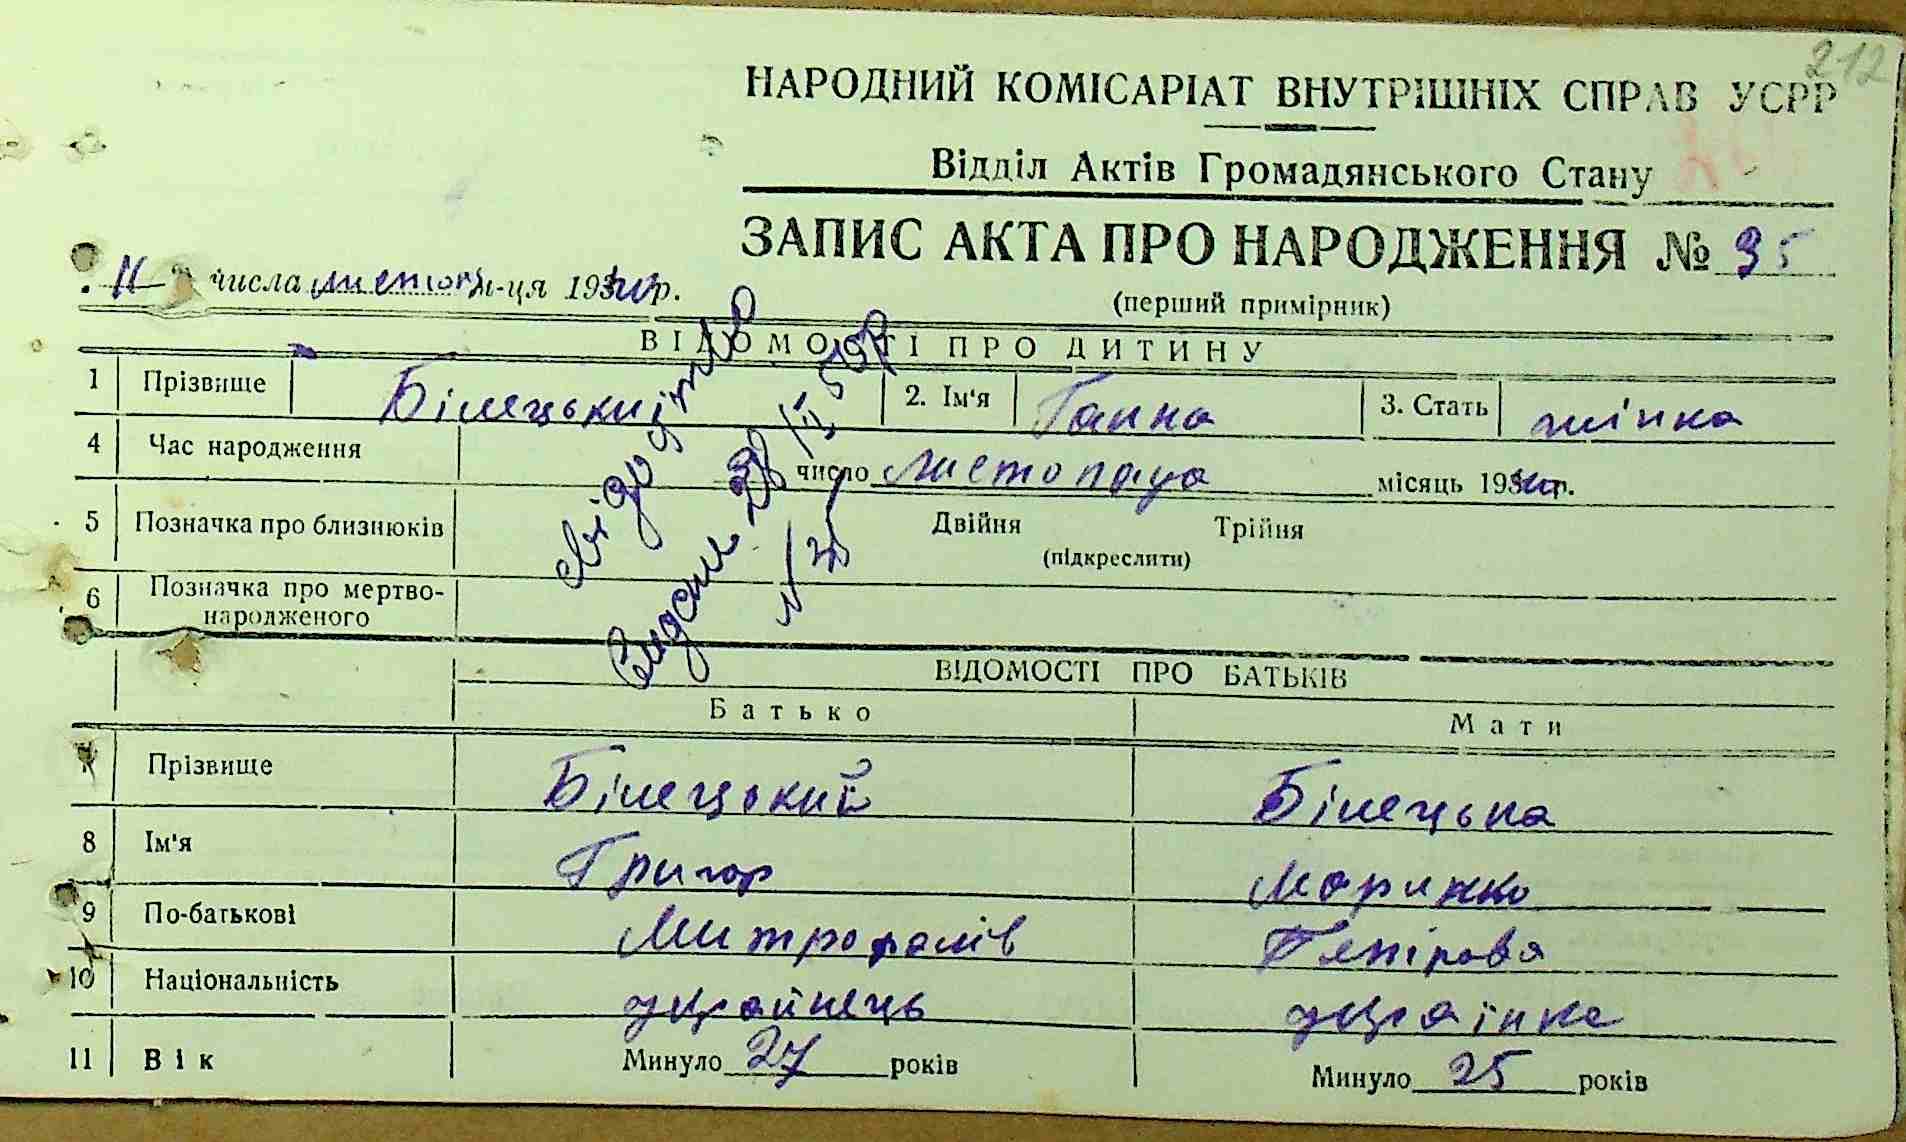 212
НАРОДНИЙ КОМІСАРІАТ ВНУТРІШНІХ СПРАВ УСРР
Відділ Актів Громадянського Стану
ЗАПИС АКТА ПРО НАРОДЖЕННЯ № 35
11 числа м-ця 193 р.
(перший примірник)
ВІДОМОСТІ ПРО ДИТИНУ
1 Прізвище Білецький 2. Ім'я Ганна 3. Стать жінка
4 Час народження число листопада місяць 193 р.
5 Позначка про близнюків Двійня Трійня
(підкреслити)
6 Позначка про мертво-
народженого
свідоцтво
ВІДОМОСТІ ПРО БАТЬКІВ
Батько Мати
Прізвище Білецький Білецька
8 Ім'я Григор
9 По-батькові
10 Національність українець українка
11 Вік Минуло 27 років Минуло 25 років